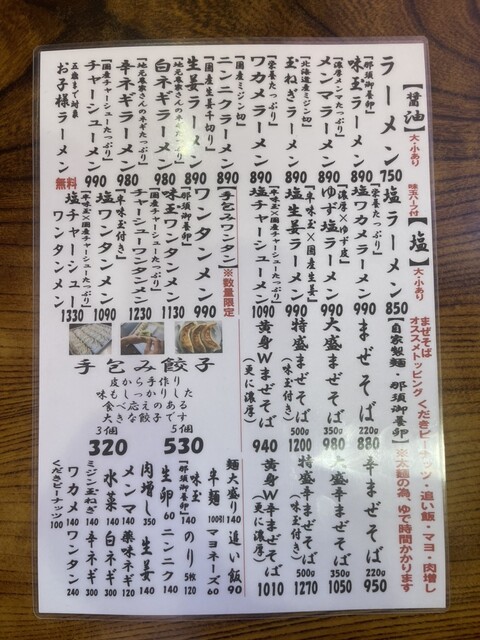 【醤油】大・小あり
ラーメン 750
【那須御養卵】
味玉ラーメン 890
【濃厚メンマたっぷり】
メンマラーメン 890
【栄養たっぷり】
ワカメラーメン 890
【北海道産ミジン切】
玉ねぎラーメン 890
【国産ミジン切】
ニンニクラーメン 890
【国産生姜千切り】
生姜ラーメン 890
【地元農家さんのネギたっぷり】
白ネギラーメン 980
【地元農家さんのネギたっぷり】
辛ネギラーメン 980
【国産チャーシューたっぷり】
チャーシューメン 990
五歳まで対象
お子様ラーメン 無料
味玉ハーフ付
【塩】大・小あり
塩ラーメン 850
【栄養たっぷり】
塩ワカメラーメン 990
【濃厚×ゆず皮】
ゆず塩ラーメン 990
【半味玉×国産生姜】
塩生姜ラーメン 990
【半味玉×国産チャーシューたっぷり】
塩チャーシューメン 1090
【手包みワンタン】※数量限定
ワンタンメン 990
【那須御養卵】
味玉ワンタンメン 1130
【国産チャーシューたっぷり】
チャーシューワンタンメン 1230
【半味玉付き】
塩ワンタンメン 1090
【半味玉×国産チャーシューたっぷり】
塩チャーシューワンタンメン 1330
まぜそば
オススメトッピング くだきピーナッツ・追い飯・マヨ・肉増し
【自家製麺・那須御養卵】※太麺の為、ゆで時間かかります
まぜそば 220g 880
大盛まぜそば 350g 980
特盛まぜそば 500g 1200
(味玉付き)
黄身Wまぜそば 940
(更に濃厚)
辛まぜそば 220g 950
大盛辛まぜそば 350g 1050
特盛辛まぜそば 500g 1270
(味玉付き)
黄身W辛まぜそば 1010
(更に濃厚)
手包み餃子
皮から手作り
味もしっかりした
食べ応えのある
大きな餃子です
3個 5個
320 530
麺大盛り 140
追い飯 90
半麺 100引
マヨネーズ 60
【那須御養卵】
味玉 140
のり 5枚 120
生卵 60
ニンニク 140
肉増し 350
生姜 140
メンマ 140
薬味ネギ 120
水菜 140
白ネギ 300
ミジン玉ねぎ 140
辛ネギ 300
ワカメ 140
ワンタン 240
くだきピーナッツ 100